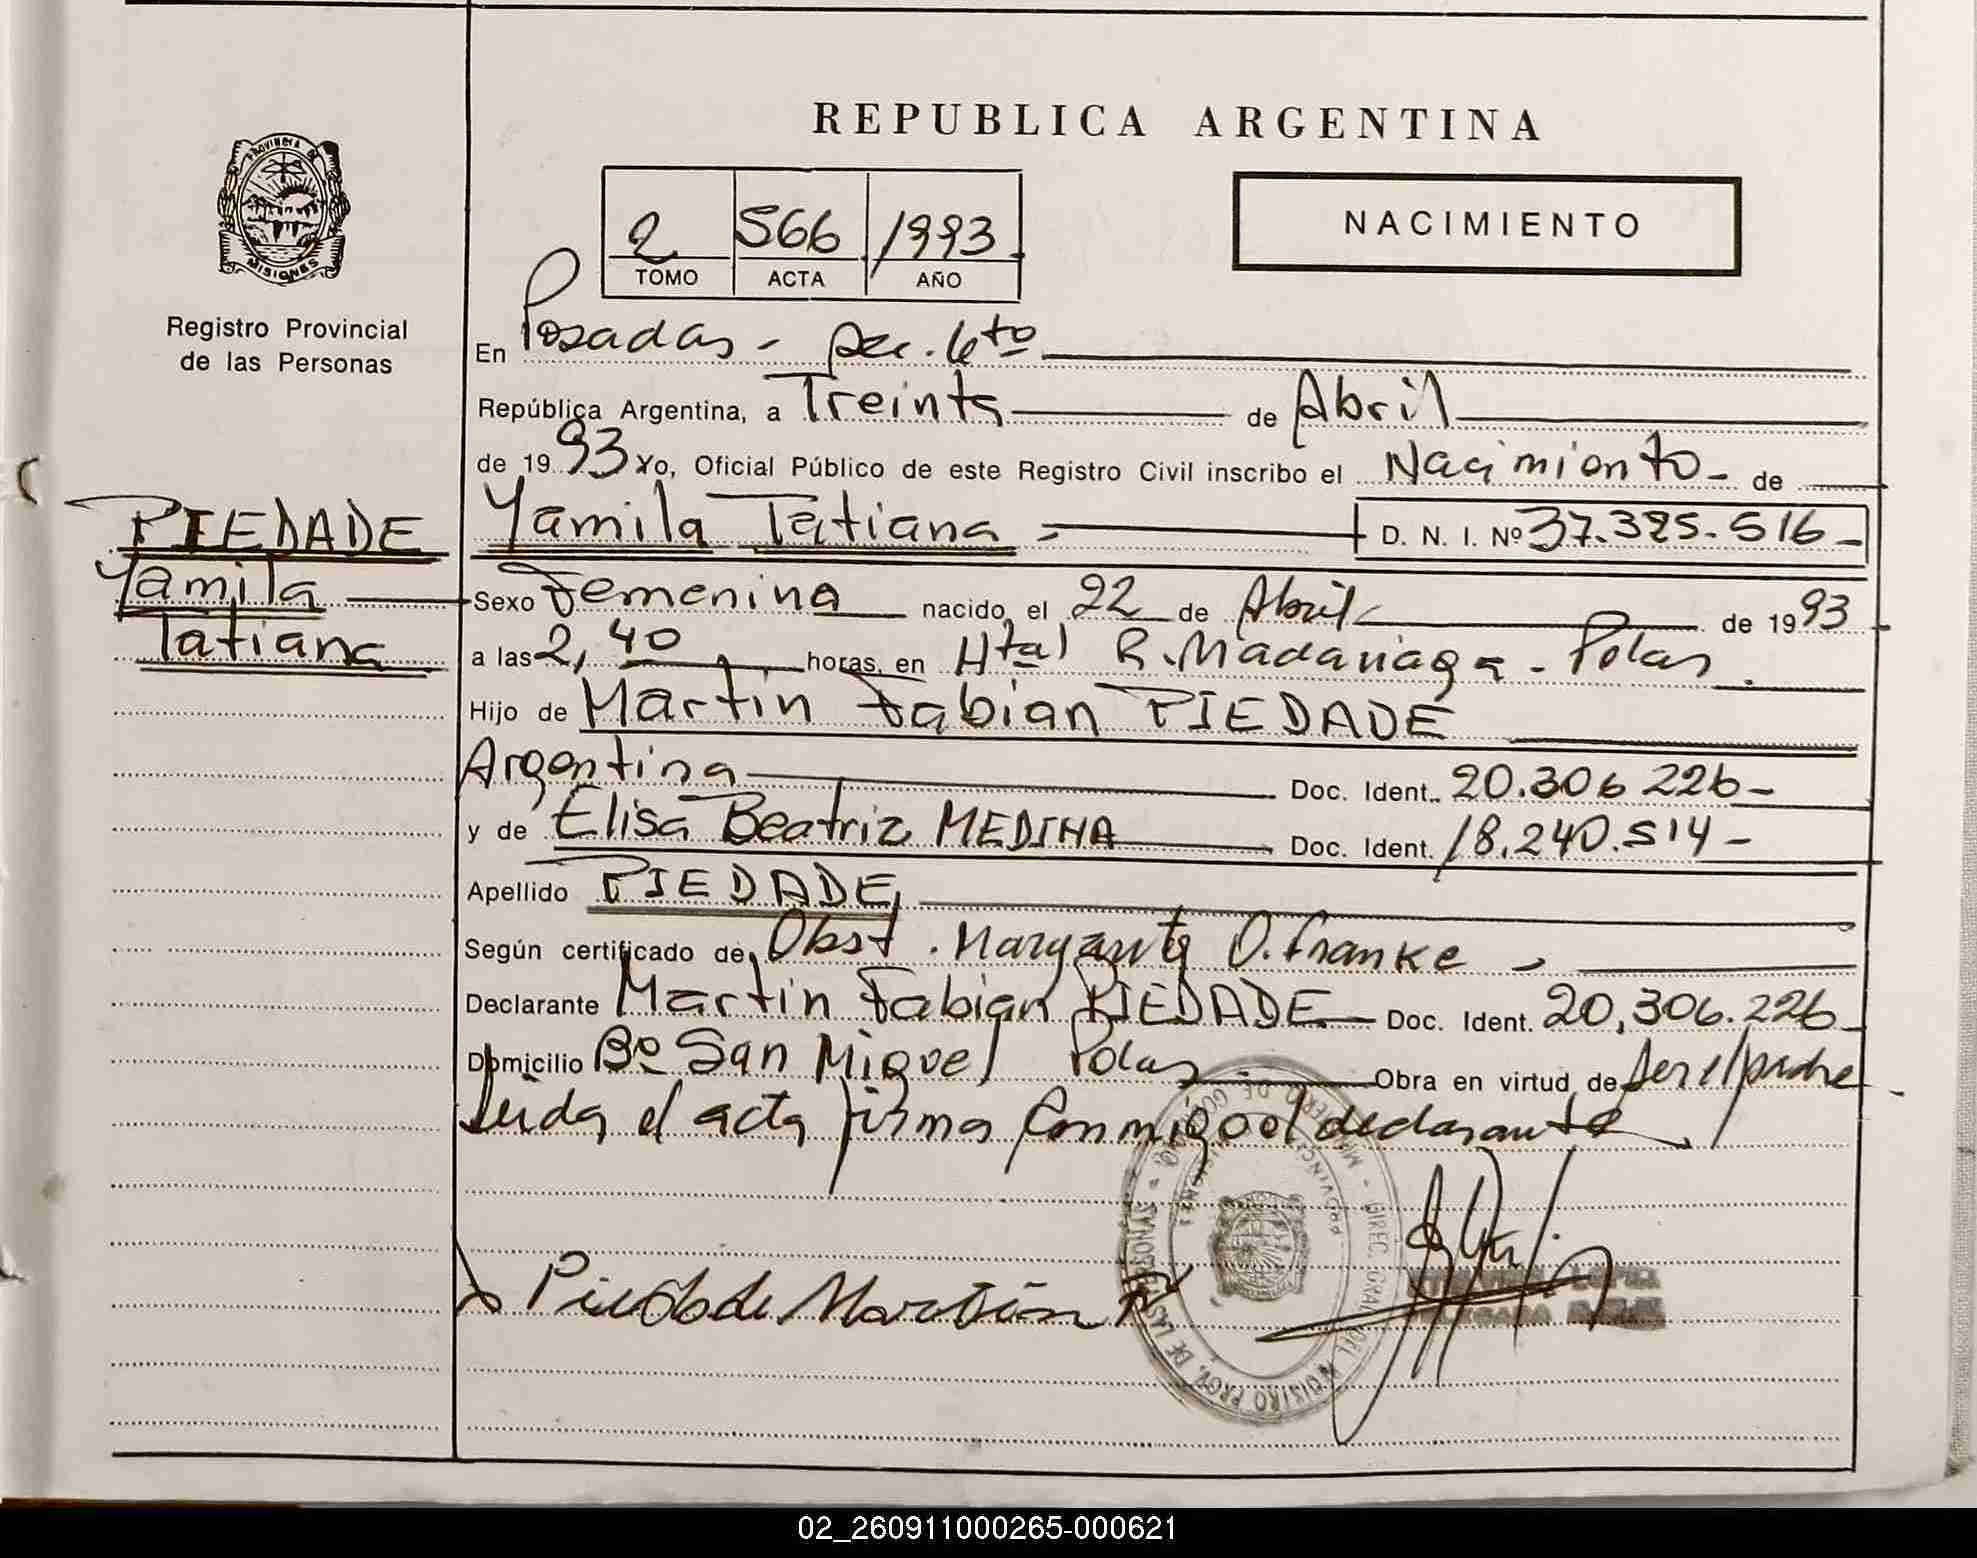 REPUBLICA ARGENTINA
PROVINCIA DE
MISIONES
Registro Provincial
de las Personas
2 566 1993
TOMO ACTA AÑO
NACIMIENTO
En Posadas - Sec. 6to
República Argentina, a Treinta de Abril
de 1993 Yo, Oficial Público de este Registro Civil inscribo el Nacimiento - de
PIEDADE
Yamila
Tatiana
Yamila Tatiana - D. N. I. Nº 37.395.516 -
Sexo Femenina nacido el 22 de Abril de 1993
a las 2,40 horas, en Htal R. Madariaga - Pdas.
Hijo de Martin Fabian PIEDADE
Argentina Doc. Ident. 20.306 226 -
y de Elisa Beatriz MEDINA Doc. Ident. 18.240.514 -
Apellido PIEDADE,
Según certificado de Obst. Margarita O. Franke -
Declarante Martin Fabian PIEDADE Doc. Ident. 20,306.226
Domicilio Bº San Miguel Pdas Obra en virtud de ser el padre
Leida el acta firma conmigo el declarante
Piedade Martin F
02_260911000265-000621